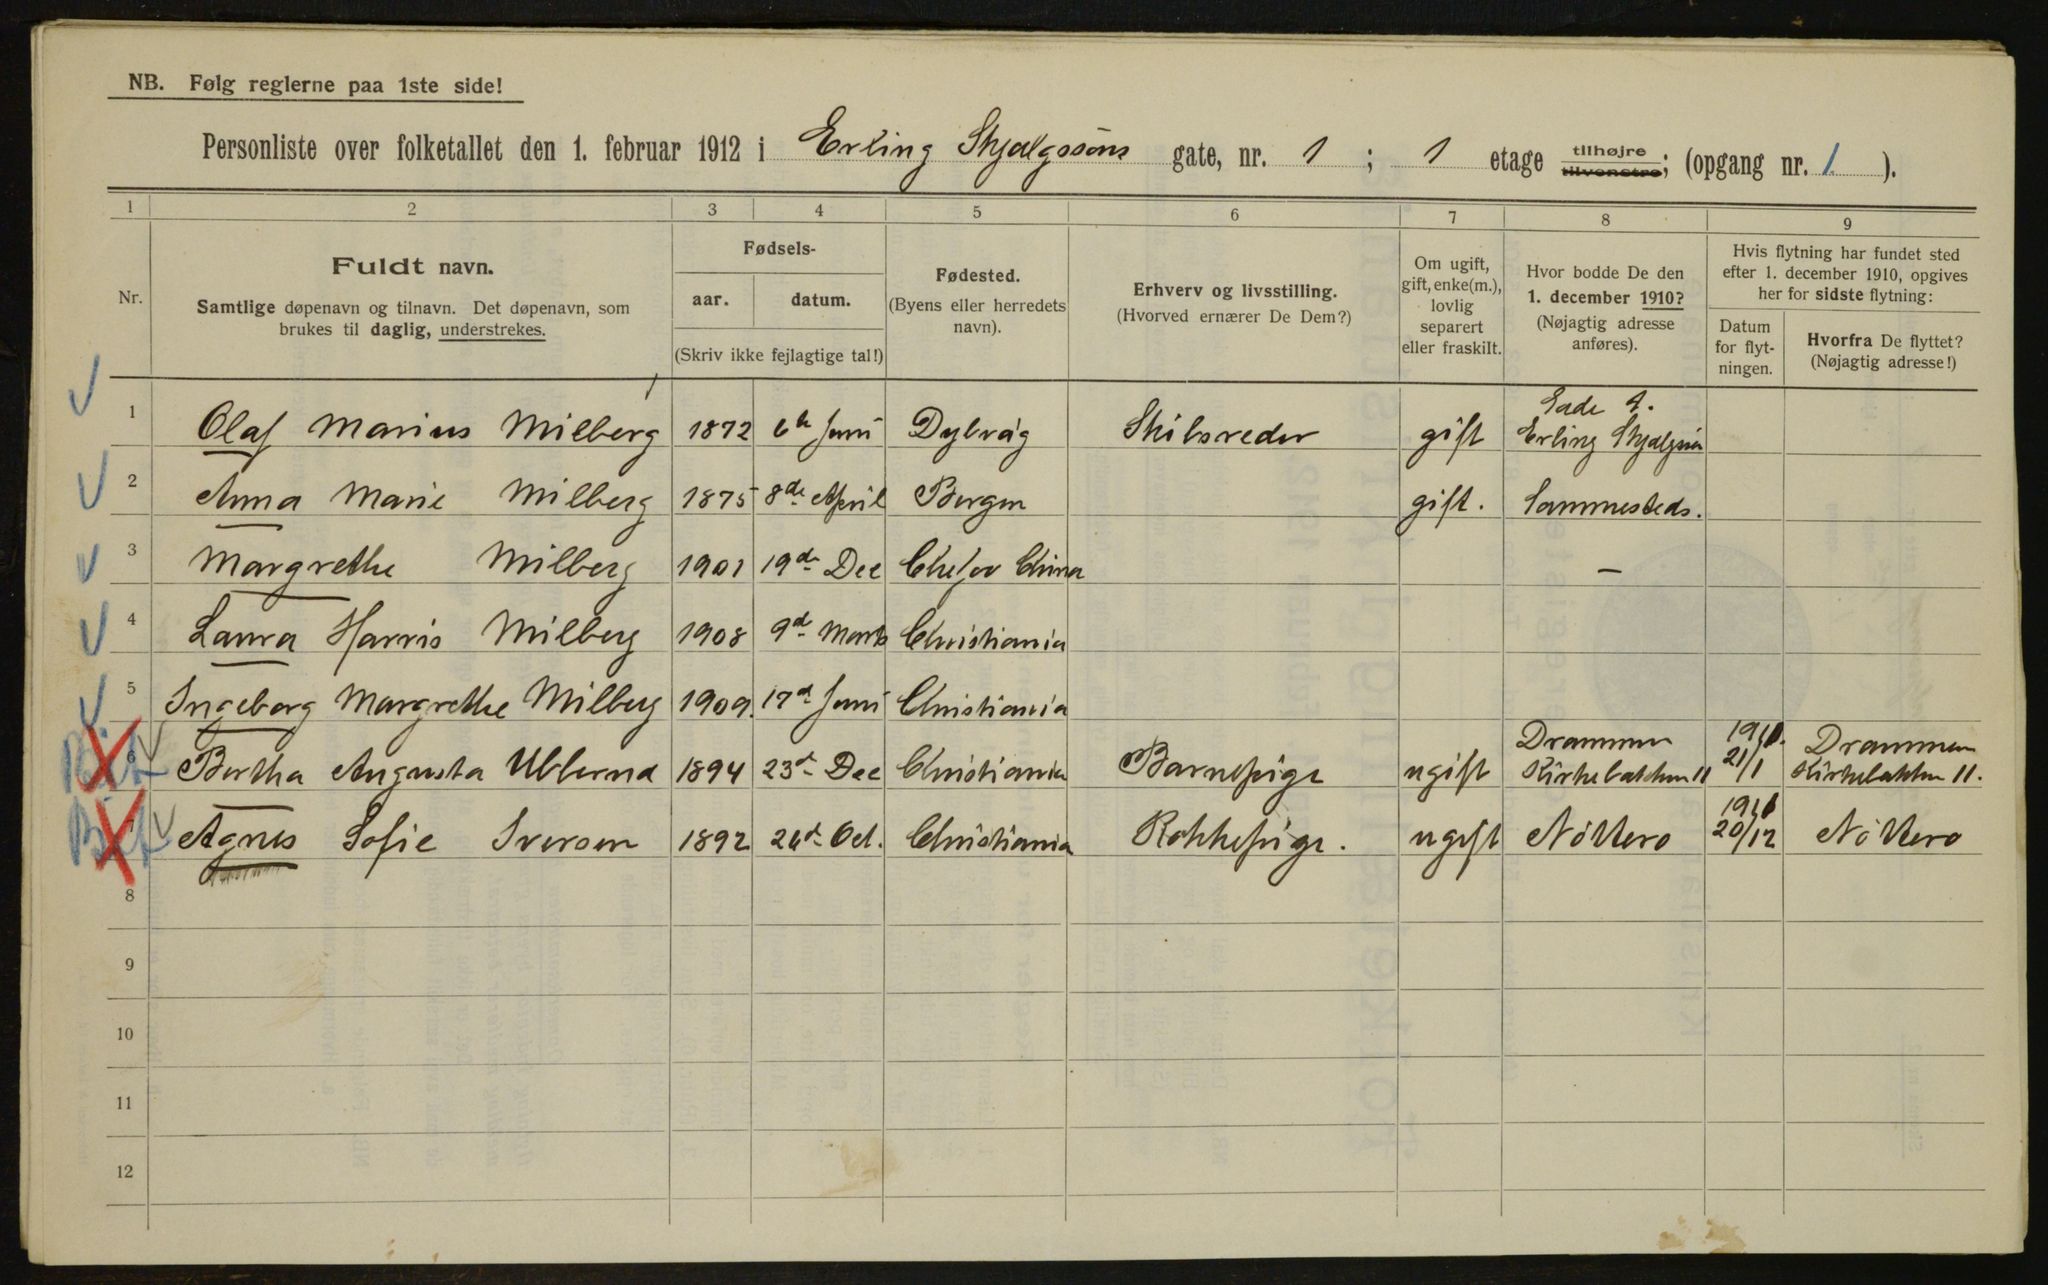 NB. Følg reglerne paa 1ste side!
Personliste over folketallet den 1. februar 1912 i Erling Skjalgsöns gate, nr. 1 ; 1 etage tilhøjre tilvenstre; (opgang nr. 1. ).
1 2 3 4 5 6 7 8 9
Nr.
Fuldt navn.
Samtlige døpenavn og tilnavn. Det døpenavn, som
brukes til daglig, understrekes.
Fødsels-
aar. datum.
(Skriv ikke fejlagtige tal!)
Fødested.
(Byens eller herredets
navn).
Erhverv og livsstilling.
(Hvorved ernærer De Dem?)
Om ugift,
gift, enke(m.),
lovlig
separert
eller fraskilt.
Hvor bodde De den
1. december 1910?
(Nøjagtig adresse
anføres).
Hvis flytning har fundet sted
efter 1. december 1910, opgives
her for sidste flytning:
Datum
for flyt-
ningen.
Hvorfra De flyttet?
(Nøjagtig adresse!)
1 Olaf Marius Milberg 1872 6te Juni Dybvåg Skibsreder gift Erling Skjalgsön
2 Anna Marie Milberg 1875 8de April Bergen gift. Sammesteds.
3 Margrethe Milberg 1901 19de Dec Chefoo China —
4 Laura Harris Milberg 1908 9d Marts Christiania
5 Ingeborg Margrethe Milberg 1909. 17d Juni Christiania
6 Bertha Augusta 1894 23d Dec Christiania Barnepige ugift Drammen Kirkebakken 11 21/1 Drammen Kirkebakken 11.
7 Agnes Sofie Iversen 1892 Oct. Christiania Kokkepige. ugift Nöttero 20/12 Nöttero
8
9
10
11
12